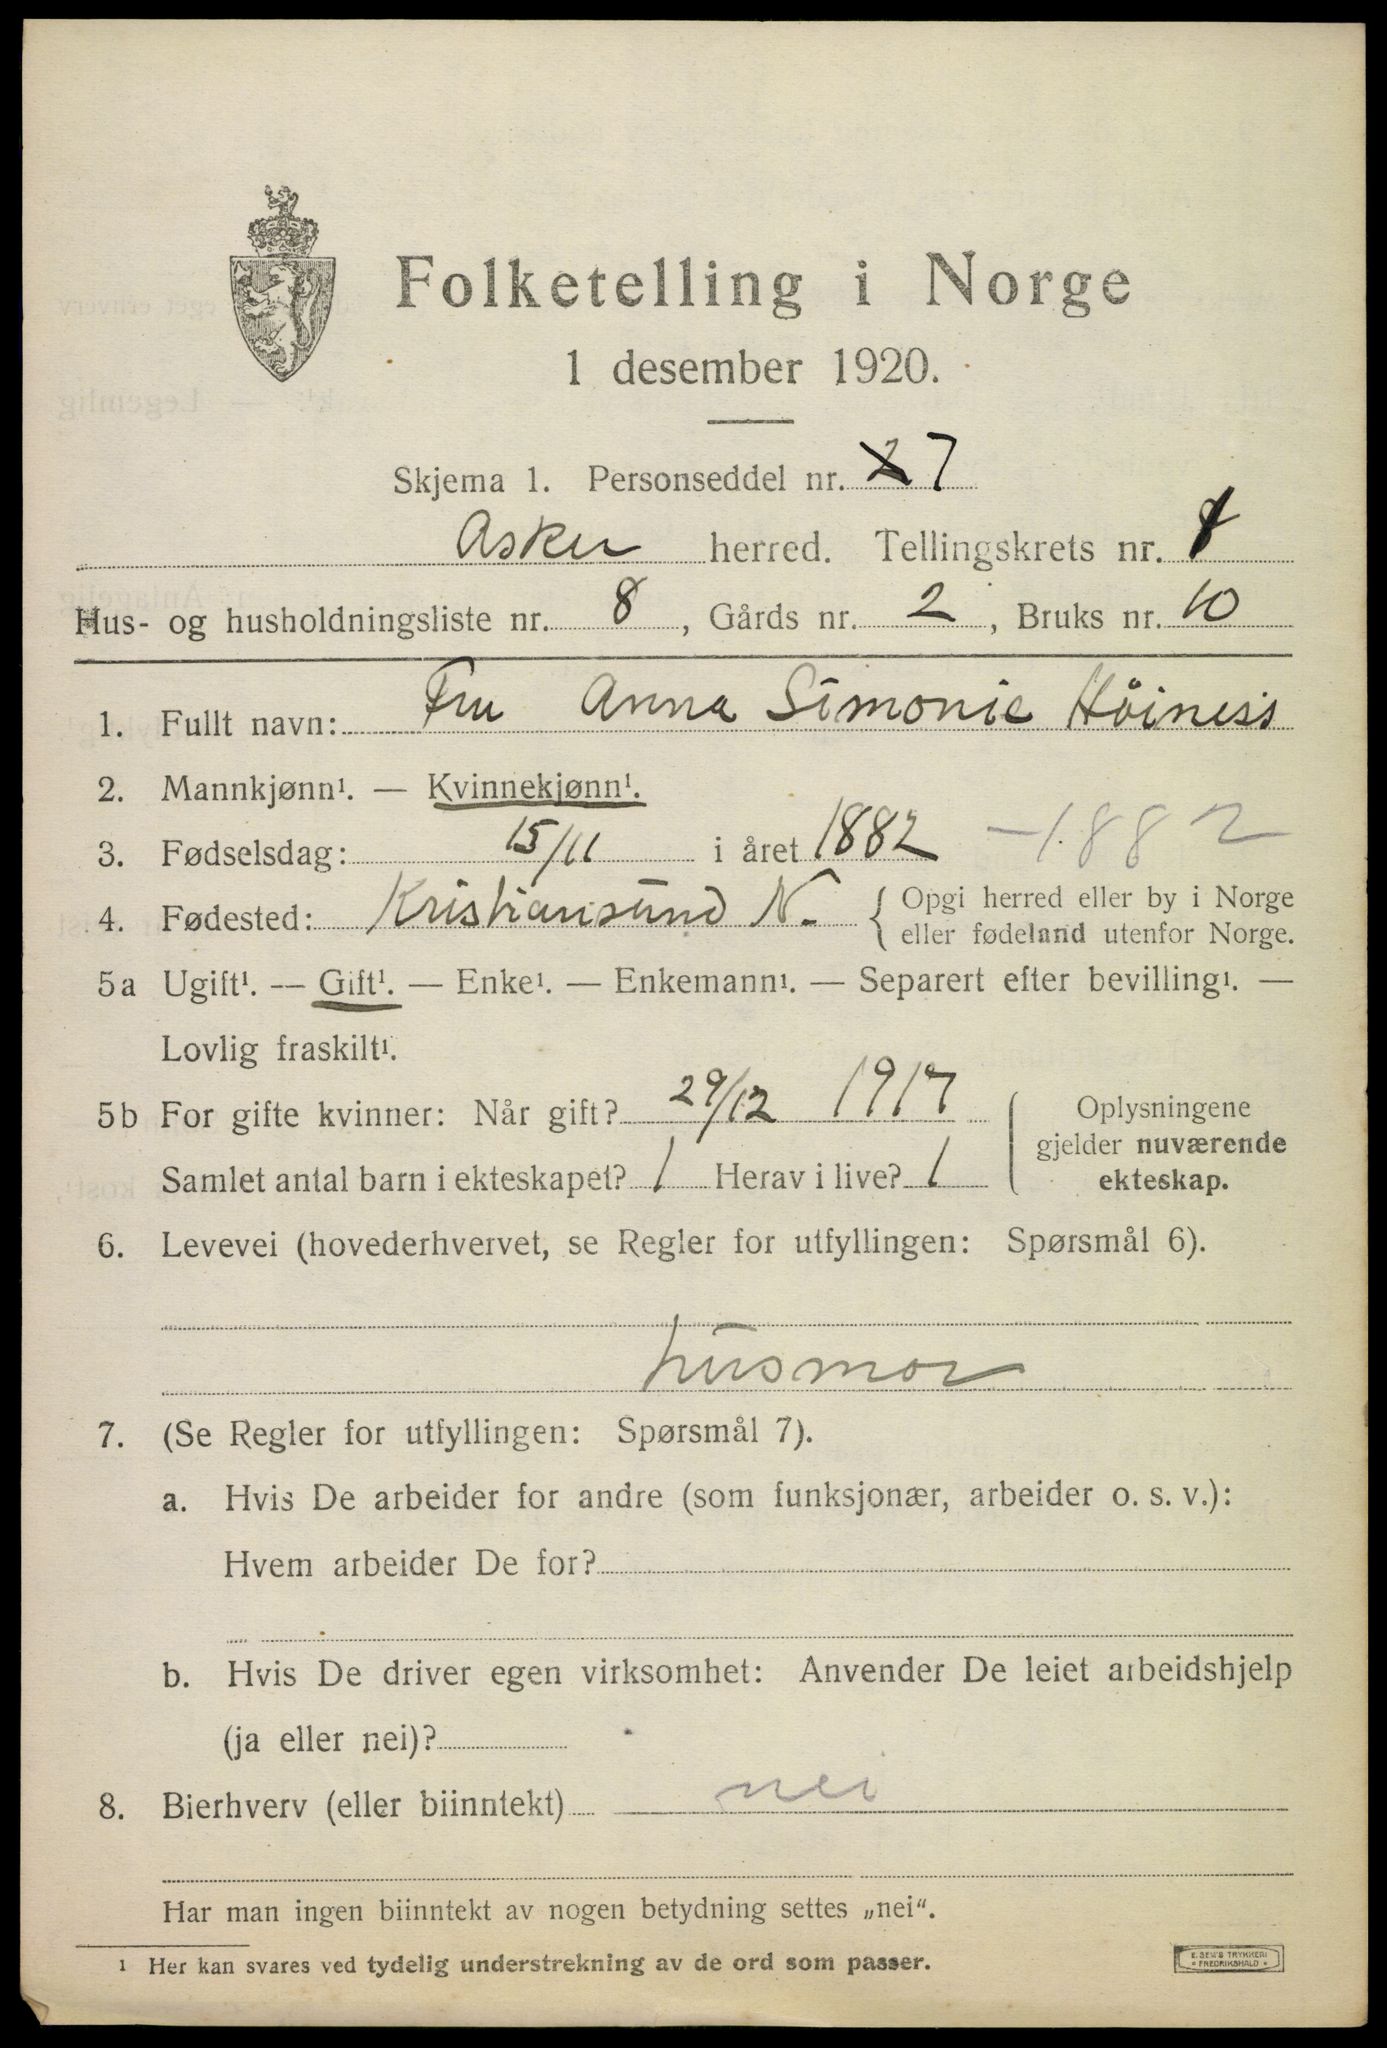 Folketelling i Norge
1 desember 1920.
Skjema 1. Personseddel nr. 2 7
Asker herred. Tellingskrets nr.
Hus- og husholdningsliste nr. 8, Gårds nr. 2, Bruks nr. 10
1. Fullt navn: Fru Anna Simonie Höiness
2. Mannkjønn¹. — Kvinnekjønn¹.
3. Fødselsdag: 15/11 i året 1882 — 1882
4. Fødested: Kristiansund N. { Opgi herred eller by i Norge
eller fødeland utenfor Norge.
5a Ugift¹. — Gift¹. — Enke¹. — Enkemann¹. — Separert efter bevilling¹. —
Lovlig fraskilt¹.
5b For gifte kvinner: Når gift? 29/12 1917
Samlet antal barn i ekteskapet? 1 Herav i live? 1
Oplysningene
gjelder nuværende
ekteskap.
6. Levevei (hovederhvervet, se Regler for utfyllingen: Spørsmål 6).
husmor
7. (Se Regler for utfyllingen: Spørsmål 7).
a. Hvis De arbeider for andre (som funksjonær, arbeider o. s. v.):
Hvem arbeider De for?
b. Hvis De driver egen virksomhet: Anvender De leiet arbeidshjelp
(ja eller nei)?
8. Bierhverv (eller biinntekt) nei
Har man ingen biinntekt av nogen betydning settes „nei“.
¹ Her kan svares ved tydelig understrekning av de ord som passer.
E. SEM'S TRYKKERI
* FREDRIKSHALD *